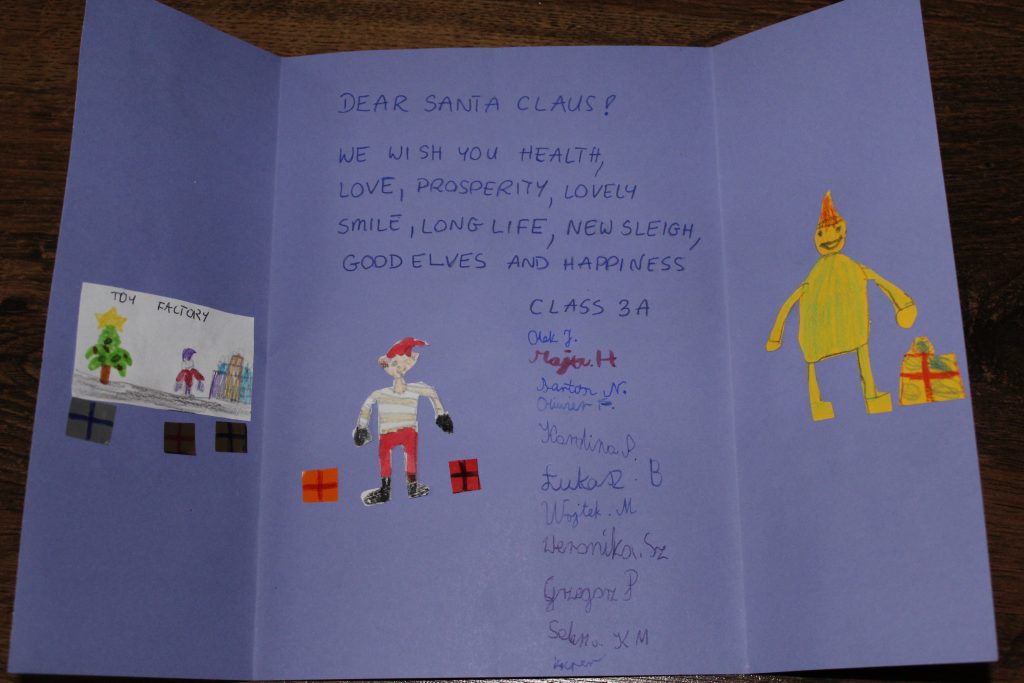 DEAR SANTA CLAUS!
WE WISH YOU HEALTH,
LOVE, PROSPERITY, LOVELY
SMILE, LONG LIFE, NEW SLEIGH,
GOOD ELVES AND HAPPINESS
CLASS 3A
TOY FACTORY
Olek J.
Majka H
Barton N.
Oliwier P.
Karolina P.
Łukasz B
Wojtek M
Weronika Sz
Grzegorz P
K M